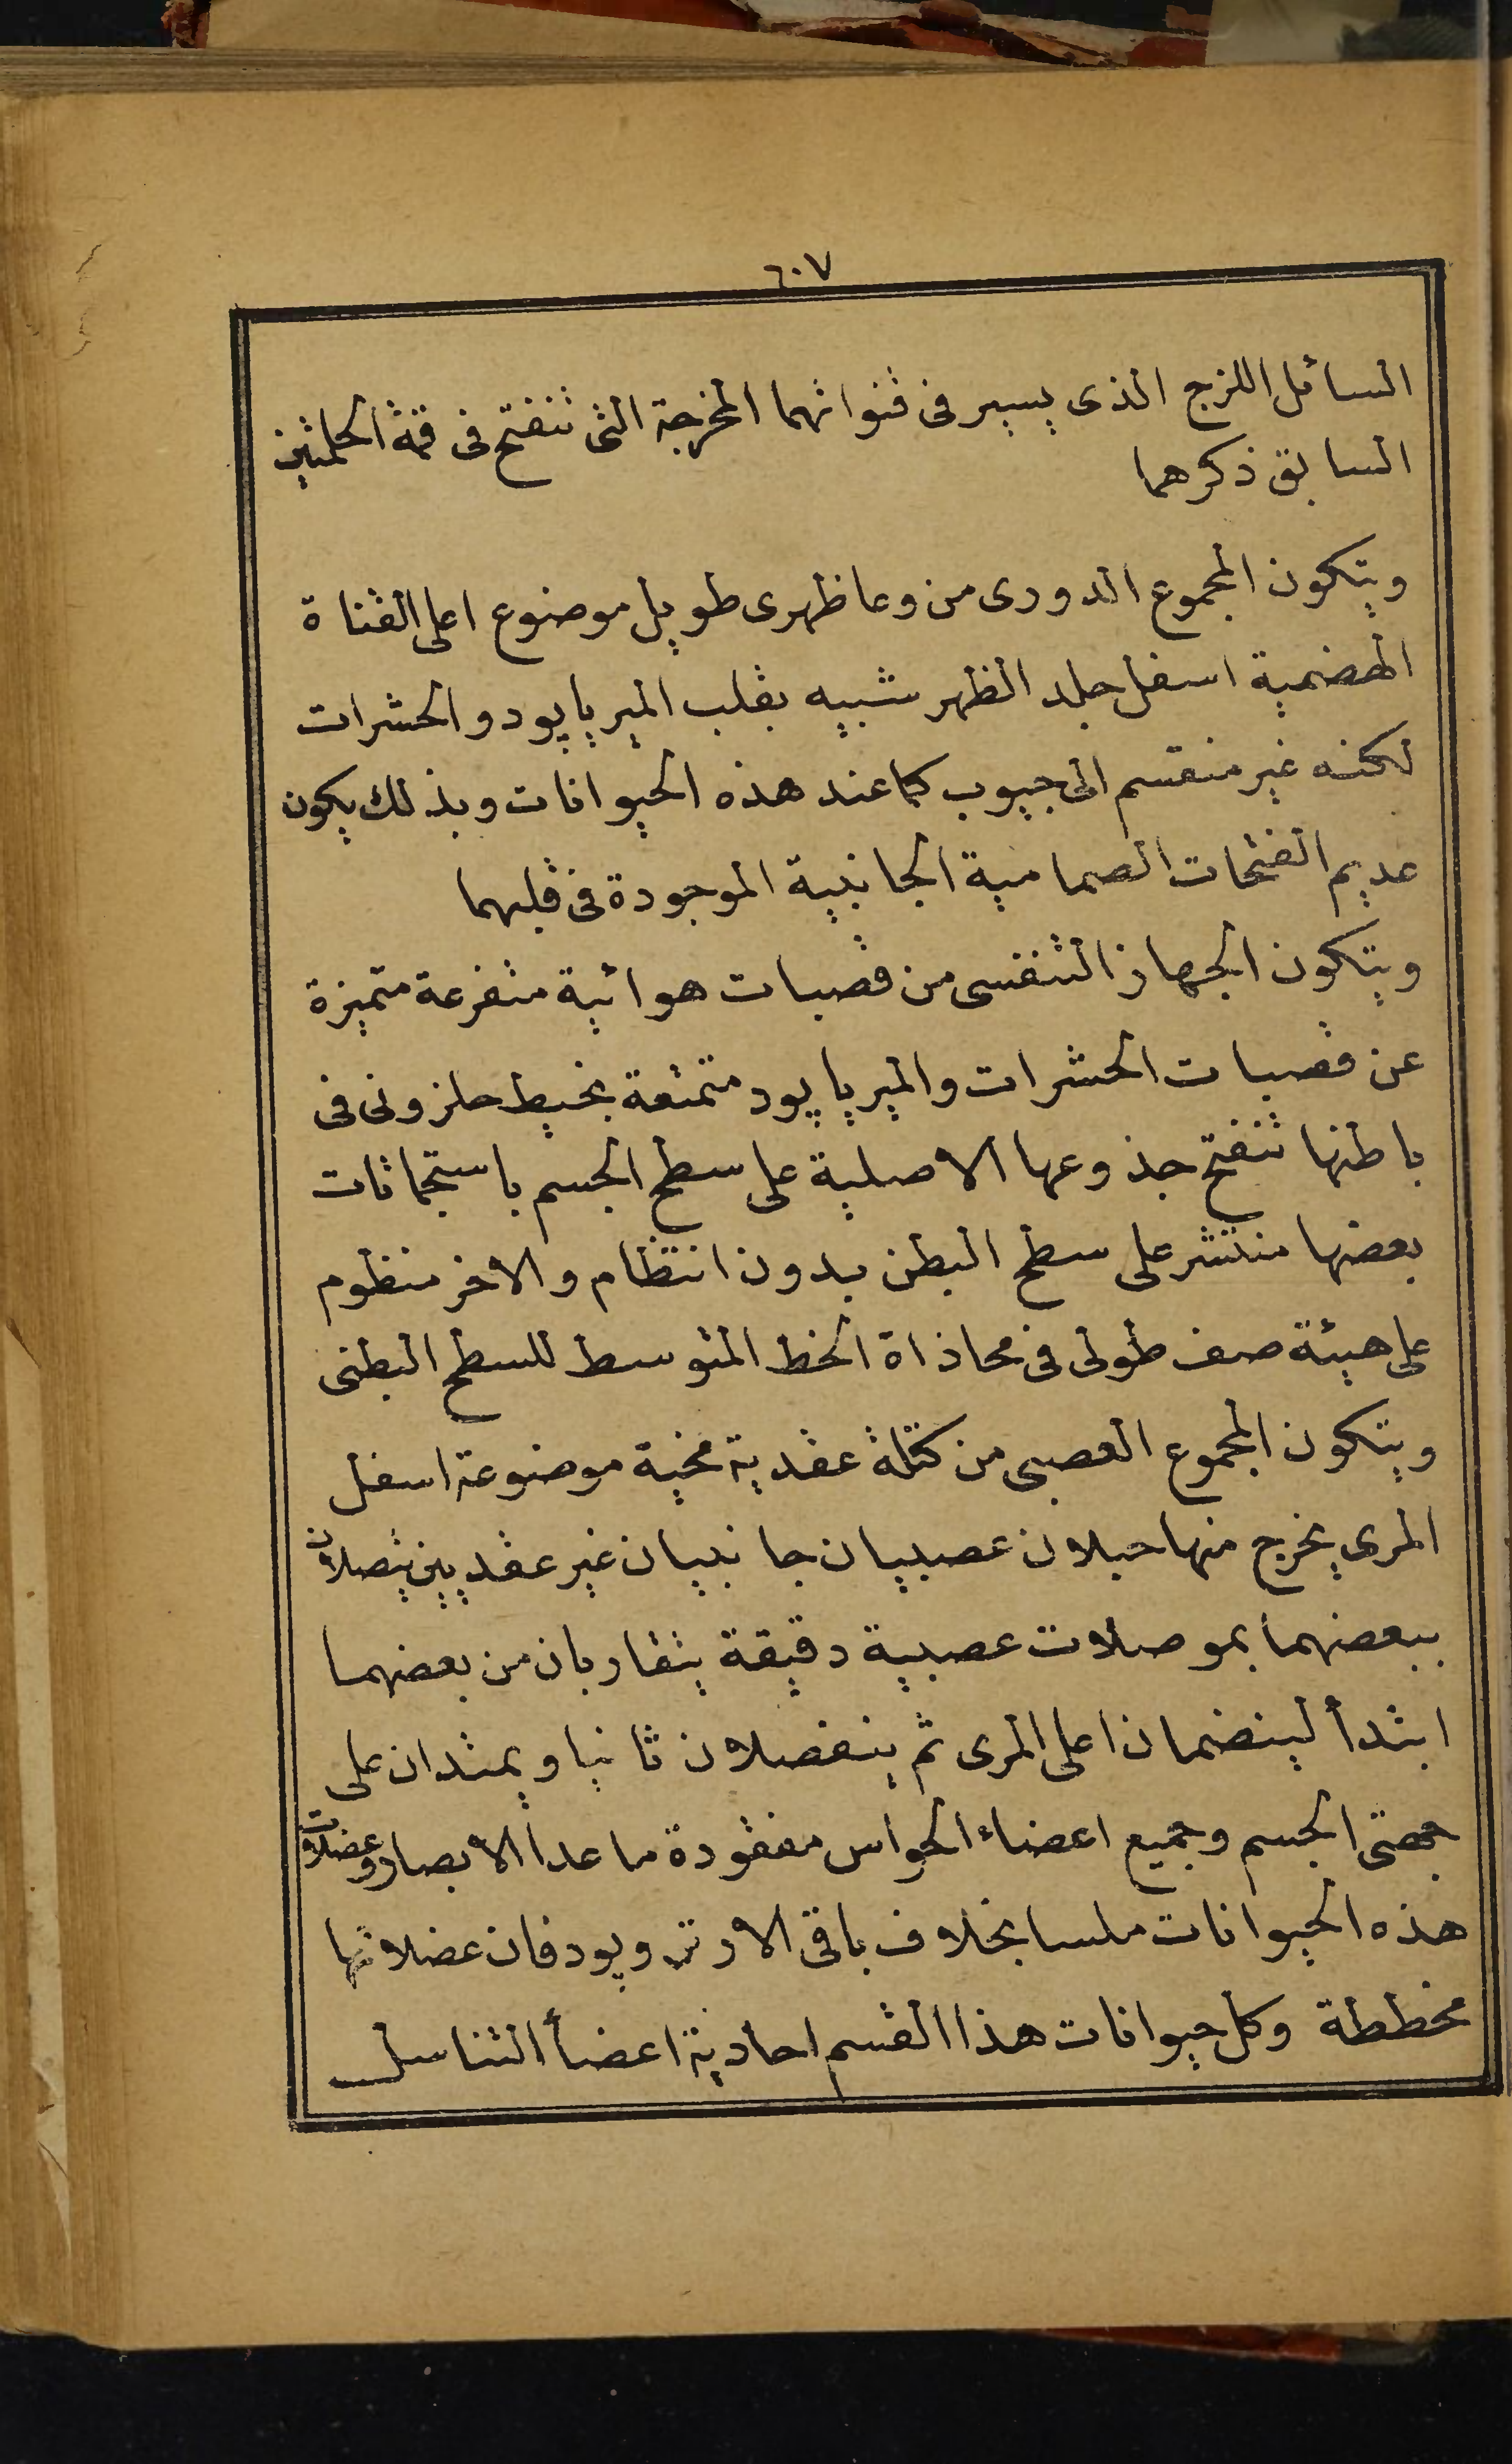 ٦٠٧
السائل اللزج الذى يسير فى قنواتهما المخرجة التى تنفتح فى قمة الحلمتين
السابق ذكرهما
ويتكون المجموع الدورى من وعا ظهرى طويل موضوع اعلى القناة
الهضمية اسفل جلد الظهر شبيه بقلب الميرياپود والحشرات
لكنه غير منقسم الى جيوب كما عند هذه الحيوانات وبذلك يكون
عديم الفتحات الصمامية الجانبية الموجودة فى قلبهما
ويتكون الجهاز التنفسى من قصبات هوائية متفرعة متميزة
عن قصبات الحشرات والميرياپود متمتعة بخيط حلزونى فى
باطنها تنفتح جذوعها الاصلية على سطح الجسم باستجماتات
بعضها منتشر على سطح البطن بدون انتظام والاخر منظوم
على هيئة صف طولى فى محاذاة الخط المتوسط للسطح البطنى
ويتكون المجموع العصبى من كتلة عقدية مخية موضوعة اسفل
المرى يخرج منها حبلان عصبيان جانبيان غير عقديين يتصلان
ببعضهما بموصلات عصبية دقيقة يتقاربان من بعضهما
ابتدأ لينضمان اعلى المرى ثم ينفصلان ثانيا ويمتدان على
جهتى الجسم وجميع اعضاء الحواس مفقودة ماعدا الابصار وعضلات
هذه الحيوانات ملسا بخلاف باقى الارتروپود فان عضلاتها
مخططة وكل حيوانات هذا القسم احادية اعضأ التناسل